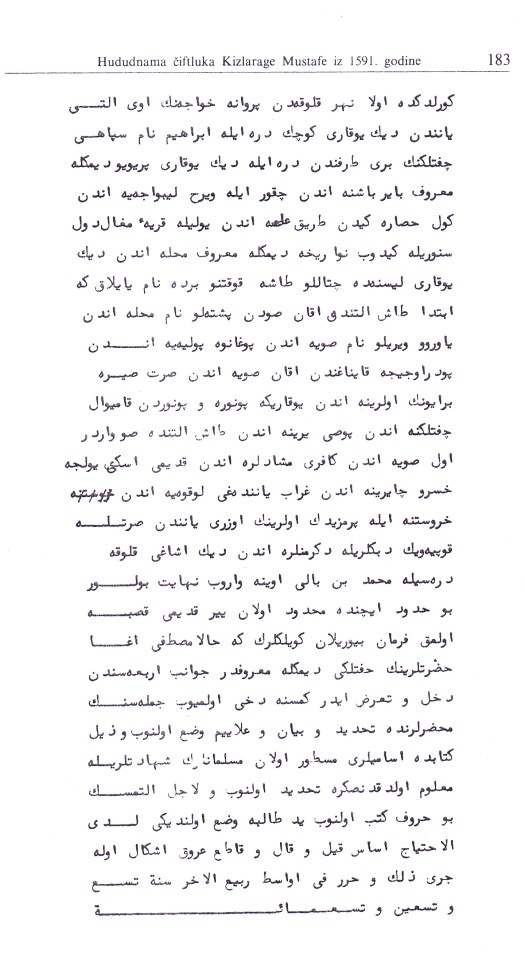 Hududnama čiftluka Kizlarage Mustafe iz 1591. godine 183
كورلدكده اولا نهر قلوقه‌دن پروانه خواجه‌نك اوى التـــى
يانندن ديك يوقارى كوچك دره ايله ابراهيم نام سپاهـى
چفتلكنك برى طرفندن دره ايله ديك يوقارى پريويو ديمكله
معروف باير باشنه اندن چقور ايله ويرح ليبواجه‌يه اندن
كول حصاره كيدن طريق اندن يوليله قريهٔ مغال دول
سنوريله كيدوب نوا ريخه ديمكله معروف محله اندن ديك
يوقارى ليسنه‌ده چتاللو طاشه قوقتنو برده نام يايلاق كه
ابتدا طاش التندن اقان صودن پشته‌لو نام محله اندن
ياوروو ويريلو نام صويه اندن پوغانوه پوليه‌يه انــــدن
پودراوجيجه قايناغندن اقان صويه اندن صرت صيــره
برايونك اولرينه اندن يوقاريكه پونوره و پونوردن قاميوال
چفتلكنه اندن پوصى يرينه اندن طاش التنده صو واردر
اول صويه اندن كافرى مشادلره اندن قديمى اسكى يولجه
خسرو چايرينه اندن غراب ياننده‌غى لوقوه‌يه اندن
خروستنه ايله پرمزيدك اولرينك اوزرى يانندن صرتلـــه
قوپيه‌ويك دبكلريله دكرمنلره اندن ديك اشاغى قلوقه
دره‌سيله محمد بن بالى اوينه واروب نهايت بولـــور
بو حدود ايچنده محدود اولان يير قديمى قصبــه
اولمق فرمان بيوريلان كوپلكلرك كه حالا مصطفى اغــا
حضرتلرينك حفتلكى ديمكله معروفدر جوانب اربعه‌سندن
دخل و تعرض ايدر كمسنه دخى اولميوب جمله‌سنــك
محضرلرنده تحديد و بيان و علاييم وضع اولنوب و ذيل
كتابده اساميلرى مسطور اولان مسلمانلرك شهادتلريله
معلوم اولدقدنصكره تحديد اولنوب و لاجل التمســك
بو حروف كتب اولنوب يد طالبه وضع اولنديكى لــدى
الاحتياج اساس قيل و قال و قاطع عروق اشكال اوله
جرى ذلك و حرر فى اواسط ربيع الاخر سنة تســع
و تسعين و تسعمائــــة